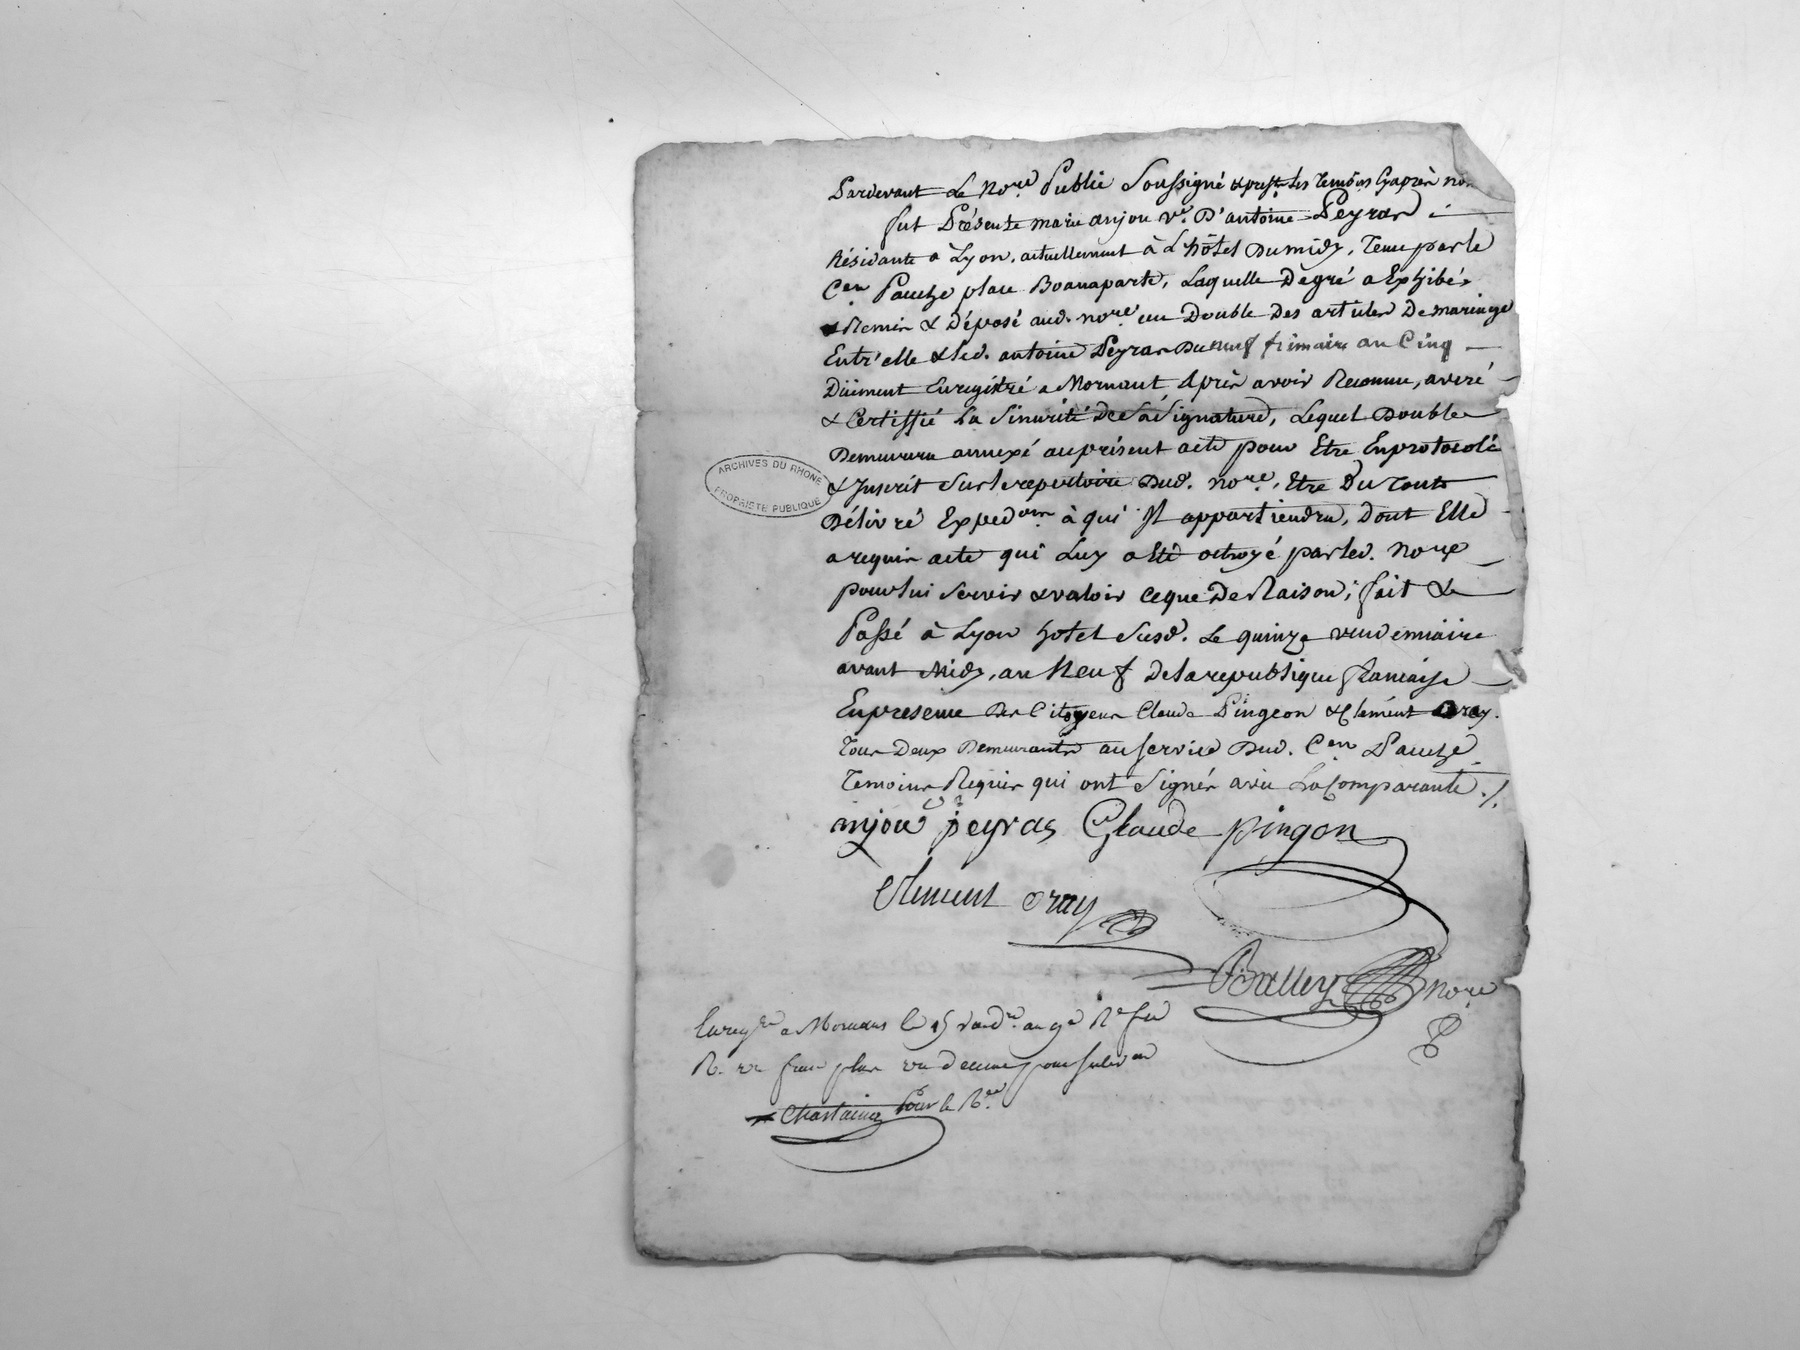 Pardevant Le Nore. Public Soussigné & prest. Les Temoins Cyaprès
fut Présente marie anjou ve. D'antoine Peyras
Résidante à Lyon, actuellement à L'hôtel Dumidy, Tenu par le
Cen. Pauche place Bonaparte, Laquelle De gré a Exhibé
Remis & Déposé aud. nore. un Double Des articles De mariage
Entr'elle & Led. antoine Peyras Du neuf frimaire an Cinq
Düement Enregistré a Mornant, Après avoir Reconnu, averé
& Certiffié La Sincerité De Sa Signature, Lequel Double
Demeurera annexé au présent acte pour Etre Enprotocolé
& Inscrit Sur le repertoire Dud. nore., Etre Du Tout
Délivré Expedon. à qui Il appartiendra, Dont Elle
a requis acte qui Luy a Eté octroyé par led. nore
pour lui Servir & valoir Ce que De Raison; fait &
Passé à Lyon hotel Susd. Le quinze vendemiaire
avant Midy, an Neuf De la republique francaise
En presence Des Citoyens Claude Pingeon & Clément Oray.
Tous Deux Demeurants au service Dud. Cen. Pauche
Temoins Requis qui ont Signés avec La Comparante ./.
anjou peyras Claude pingon
Clement Oray
Balley nore
ARCHIVES DU RHONE
PROPRIETE PUBLIQUE
Enregtré a Mornant le 15 vendre. an 9e
R. un franc plus un decime pour subvon
Chastaing Pour le Rr.